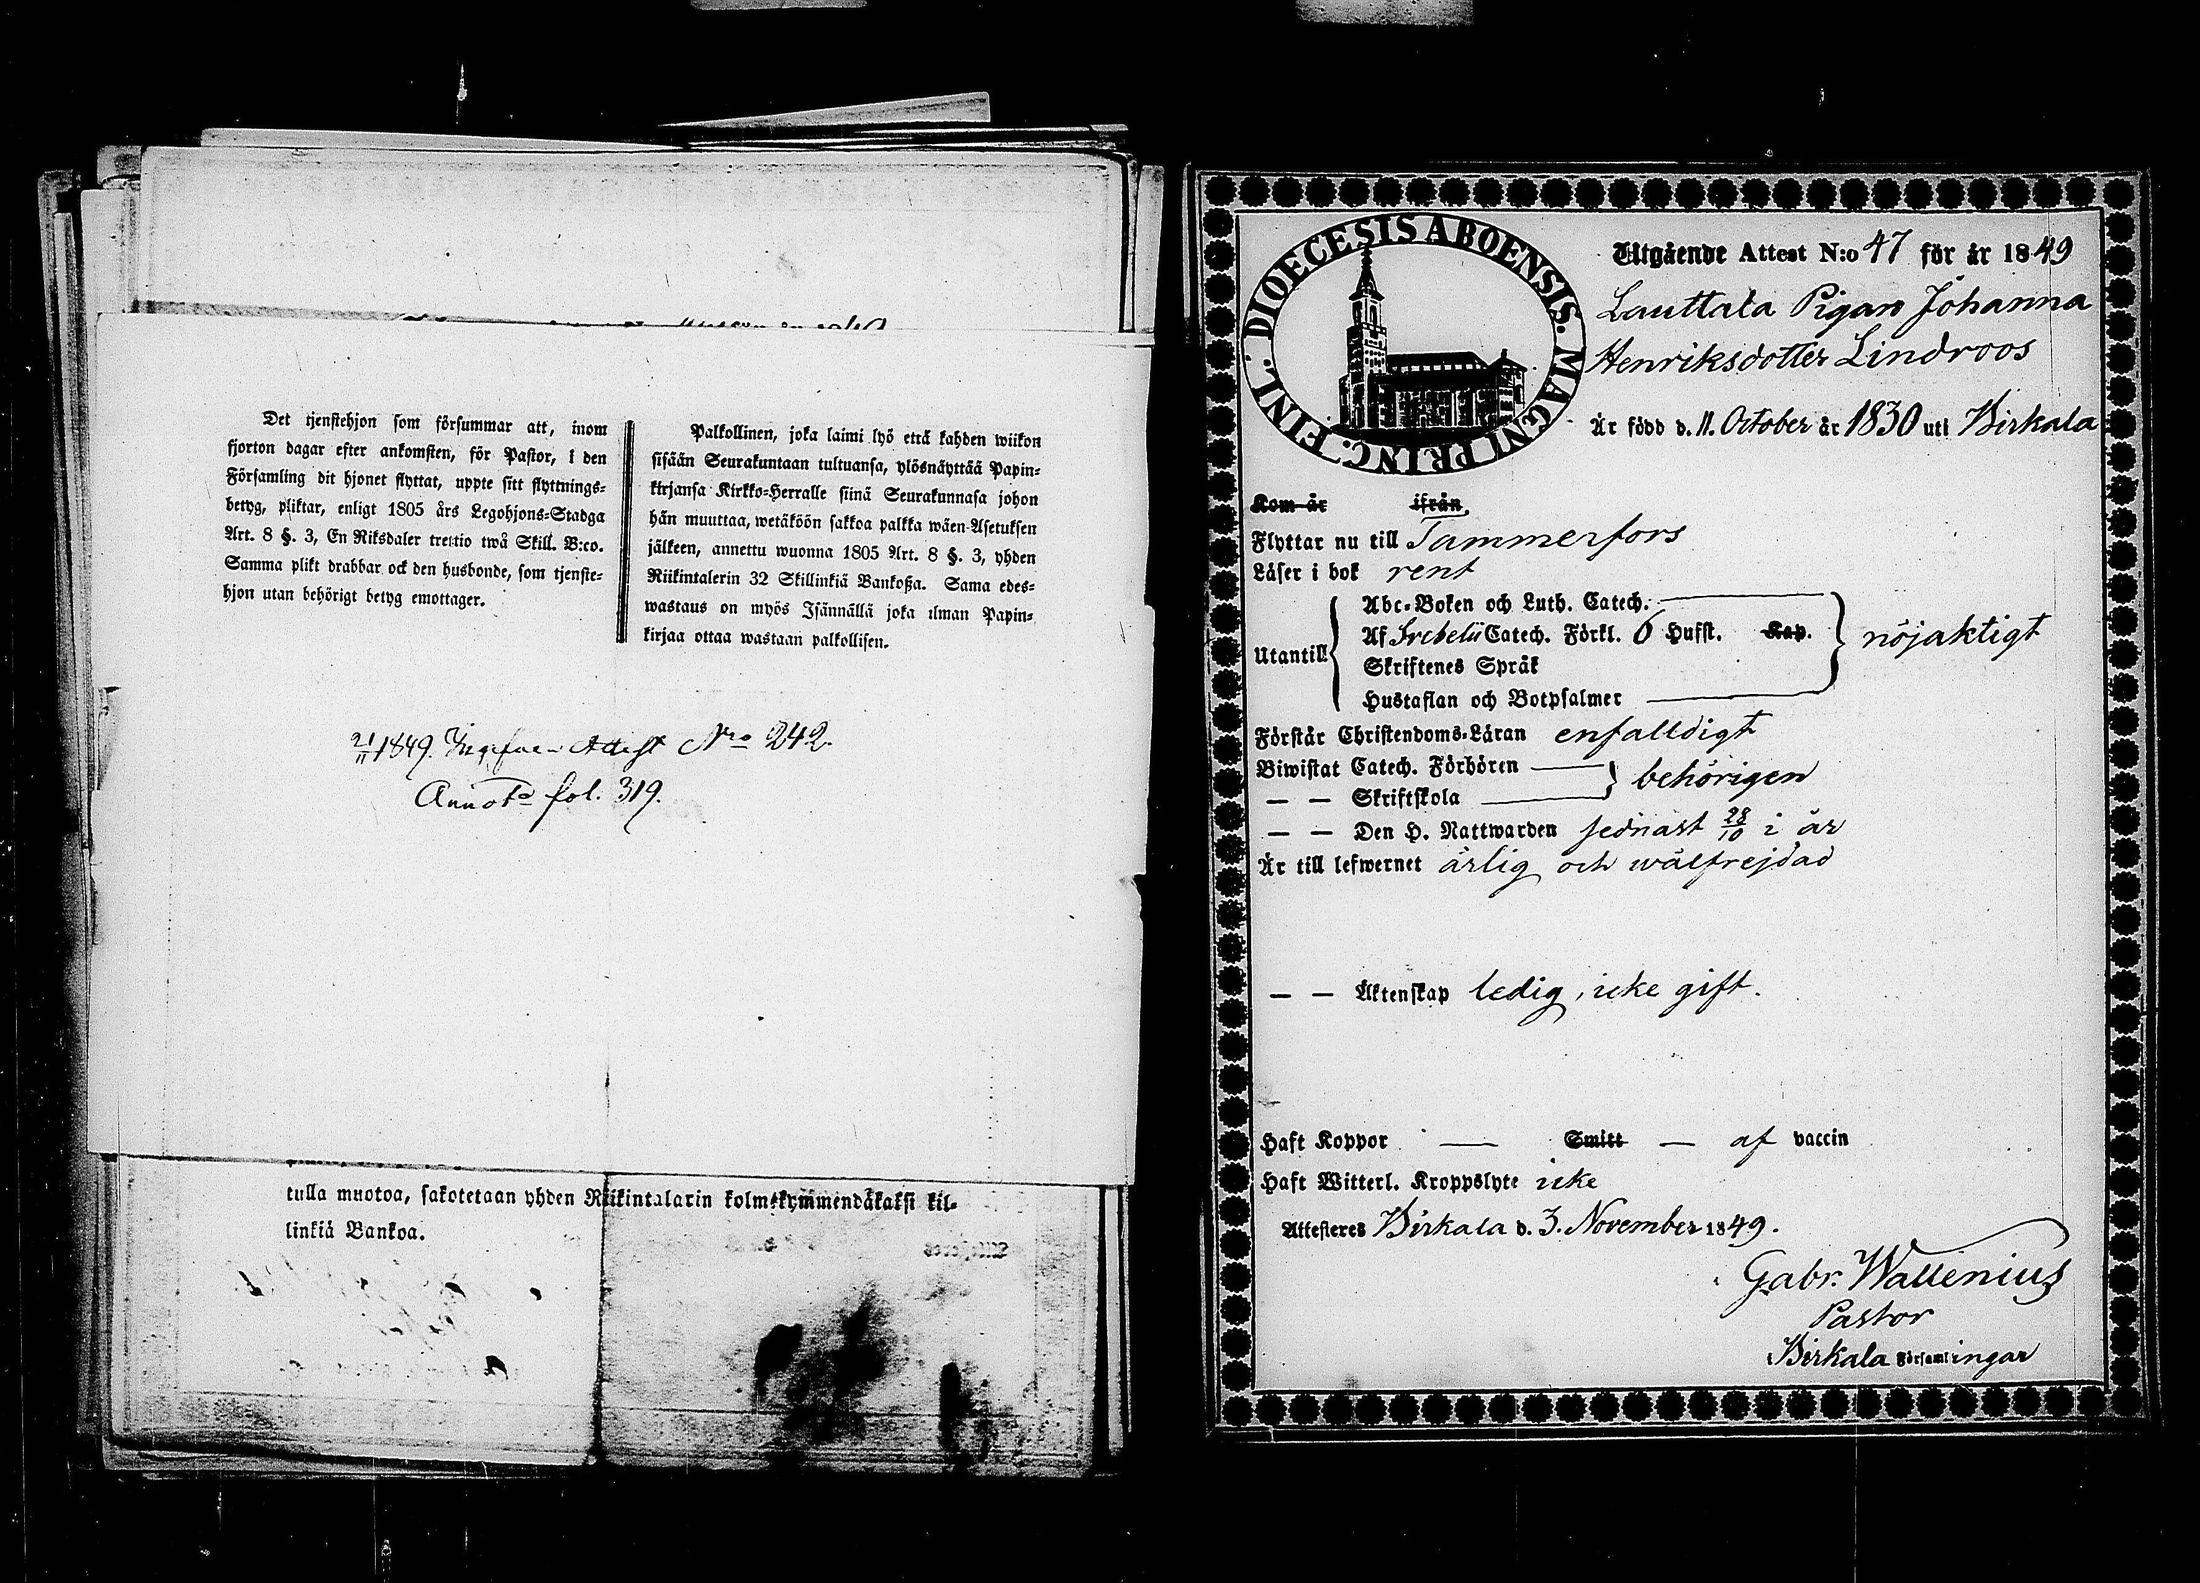 Det tjenstehjon som försummar att, inom
fjorton dagar efter ankomsten, för Pastor, i den
Församling dit hjonet flyttat, uppte sitt flyttnings-
betyg, pliktar, enligt 1805 års Legohjons-Stadga
Art. 8 §. 3, En Riksdaler trettio twå Skill. B:co.
Samma plikt drabbar ock den husbonde, som tjenste-
hjon utan behörigt betyg emottager.
Palkollinen, joka laimi lyö että kahden wiikon
sisään Seurakuntaan tultuansa, ylösnäyttää Papin-
kirjansa Kirkko-Herralle siinä Seurakunnasa johon
hän muuttaa, wetäköön sakkoa palkka wäen-Asetuksen
jälkeen, annettu wuonna 1805 Art. 8 §. 3, yhden
Riikintalerin 32 Skillinkiä Bankoßa. Sama edes-
wastaus on myös Isännällä joka ilman Papin-
kirjaa ottaa wastaan palkollisen.
21/11 1849. Attest Nro 242.
Annot. fol. 319.
tulla muotoa, sakotetaan yhden Riikintalarin kolmekymmendäkaksi kil-
linkiä Bankoa.
DIOECESIS ABOENSIS. MAGNI PRINC. FINL.
Utgående Attest N:o 47 för år 1849
Lauttala Pigan Johanna
Henriksdotter Lindroos
Är född d. 11. October år 1830 uti Birkala
Kom år ifrån
Flyttar nu till Tammerfors
Läser i bok rent
Abc-Boken och Luth. Catech.
Utantill Af Svebelii Catech. Förkl. 6 Hufst. Kap. nöjaktigt
Skriftenes Språk
Hustaflan och Botpsalmer
Förstår Christendoms-Läran enfalldigt
Biwistat Catech. Förhören behörigen
— — Skriftskola
— — Den H. Nattwarden sednast 28/10 i år
Är till lefwernet ärlig och wälfrejdad
— — Äktenskap ledig, icke gift.
Haft Koppor — Smitt — af vaccin
Haft Witterl. Kroppslyte icke
Attesteres Birkala d. 3. November 1849.
Gabr. Wallenius
Pastor
Birkala Församlingar